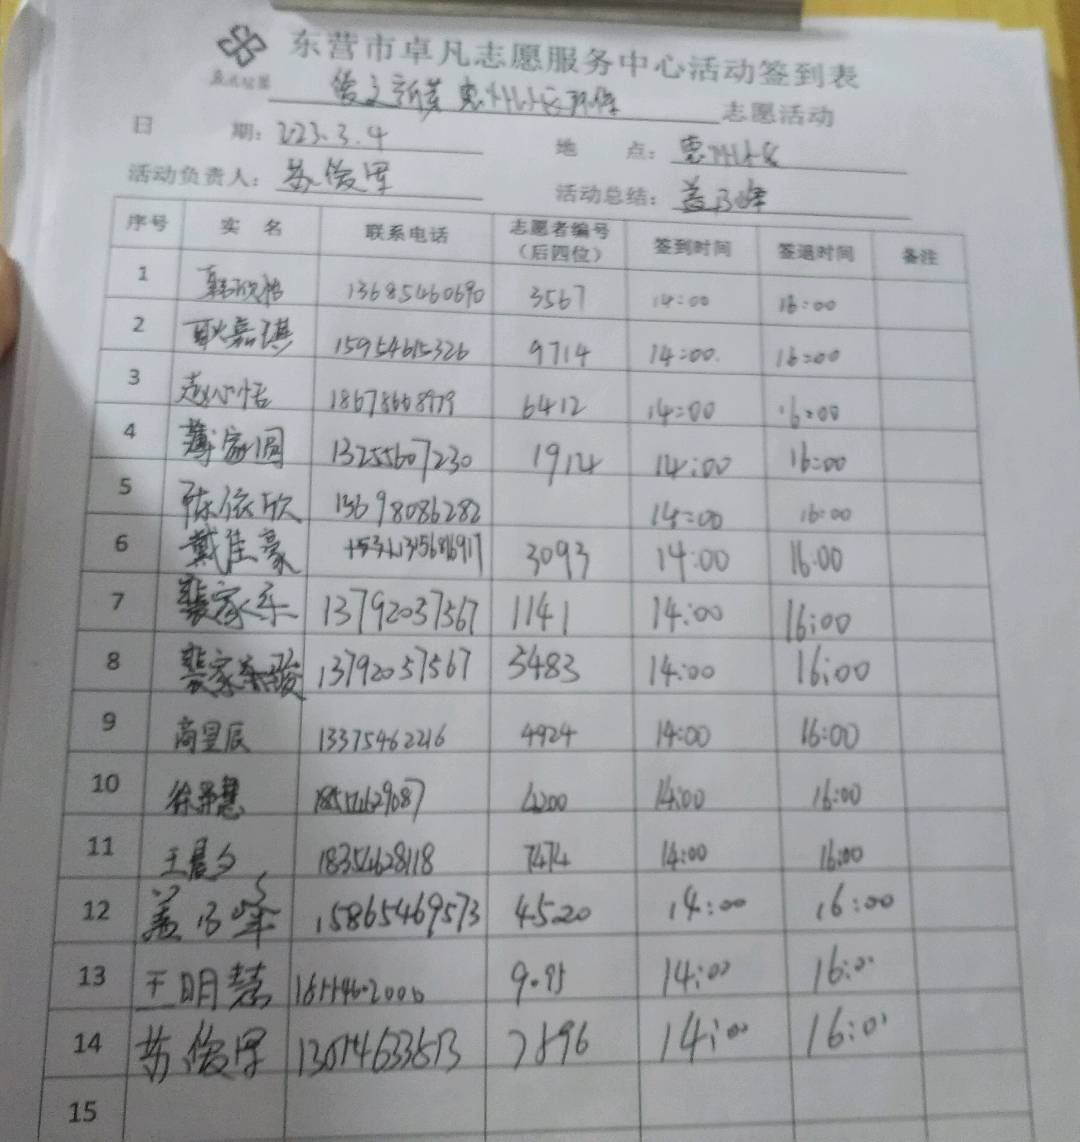 东营市卓凡志愿服务中心活动签到表
志愿活动
日 期: 2023.3.4 地 点:
活动负责人: 苏俊 活动总结: 盖乃峰
序号 实 名 联系电话 志愿者编号（后四位） 签到时间 签退时间 备注
1 韩欣怡 13685460690 3567 14:00 16:00
2 耿嘉琪 15954615326 9714 14:00 16:00
3 赵心恬 18678668979 6412 14:00 16:00
4 薄家圆 13255607230 1914 14:00 16:00
5 陈依欣 13698086282 14:00 16:00
6 戴佳豪 3093 14:00 16:00
7 裴家乐 13792037567 1141 14:00 16:00
8 裴家骏 13792037567 3483 14:00 16:00
9 高昱辰 13375462216 4924 14:00 16:00
10 4200 14:00 16:00
11 王晨夕 18354628118 7474 14:00 16:00
12 盖乃峰 15865469573 4520 14:00 16:00
13 王明慧 14:00 16:00
14 苏俊 7896 14:00 16:00
15